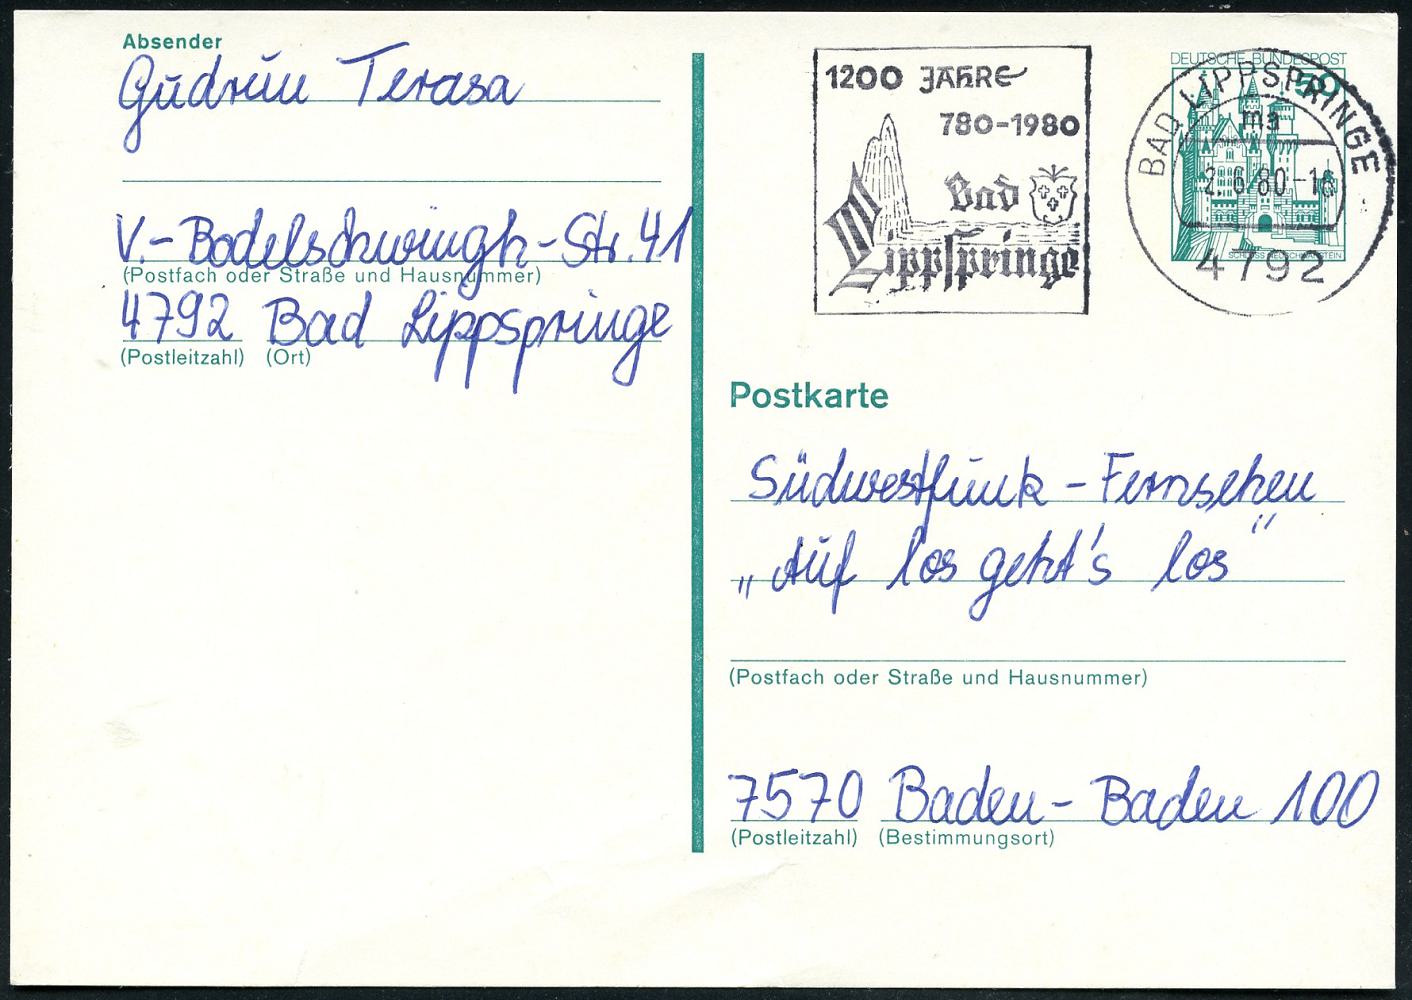 Absender
Gudrun Terasa
V.-Bodelschwingh-Str. 41
(Postfach oder Straße und Hausnummer)
4792 Bad Lippspringe
(Postleitzahl) (Ort)
1200 JAHRE
780-1980
Bad
Lippspringe
DEUTSCHE BUNDESPOST
50
SCHLOSS NEUSCHWANSTEIN
BAD LIPPSPRINGE
ma
2.6.80-16
4792
Postkarte
Südwestfunk - Fernsehen
„Auf los geht's los"
(Postfach oder Straße und Hausnummer)
7570 Baden-Baden 100
(Postleitzahl) (Bestimmungsort)